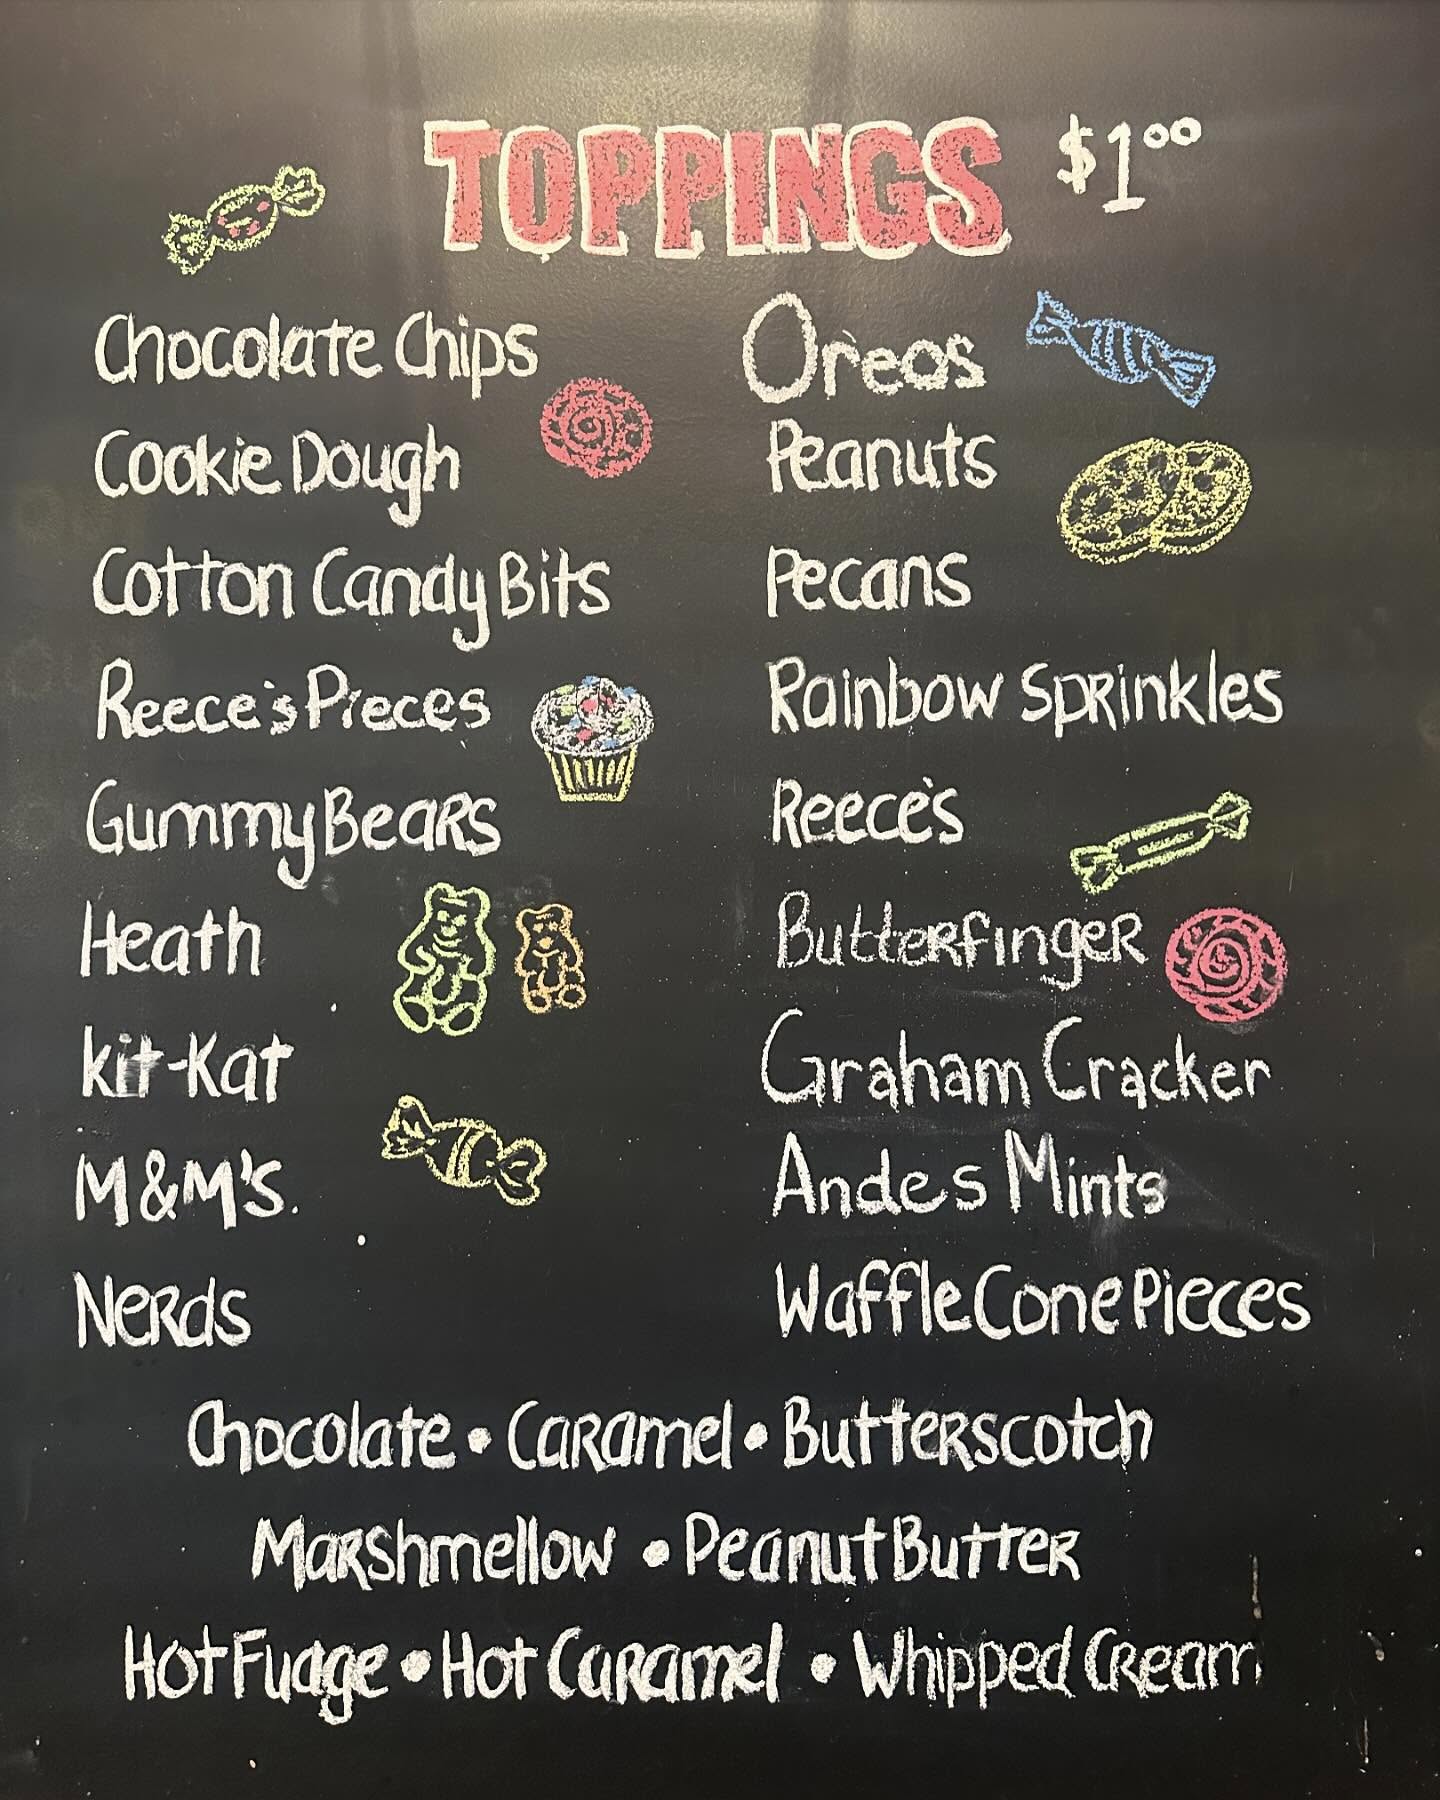 TOPPINGS $1.00
Chocolate Chips
Cookie Dough
Cotton Candy Bits
Reece's Pieces
Gummy Bears
Heath
kit-Kat
M&M's.
Nerds
Oreos
Peanuts
Pecans
Rainbow Sprinkles
Reece's
Butterfinger
Graham Cracker
Andes Mints
Waffle Cone Pieces
Chocolate • Caramel • Butterscotch
Marshmellow • Peanut Butter
Hot Fudge • Hot Caramel • Whipped Cream